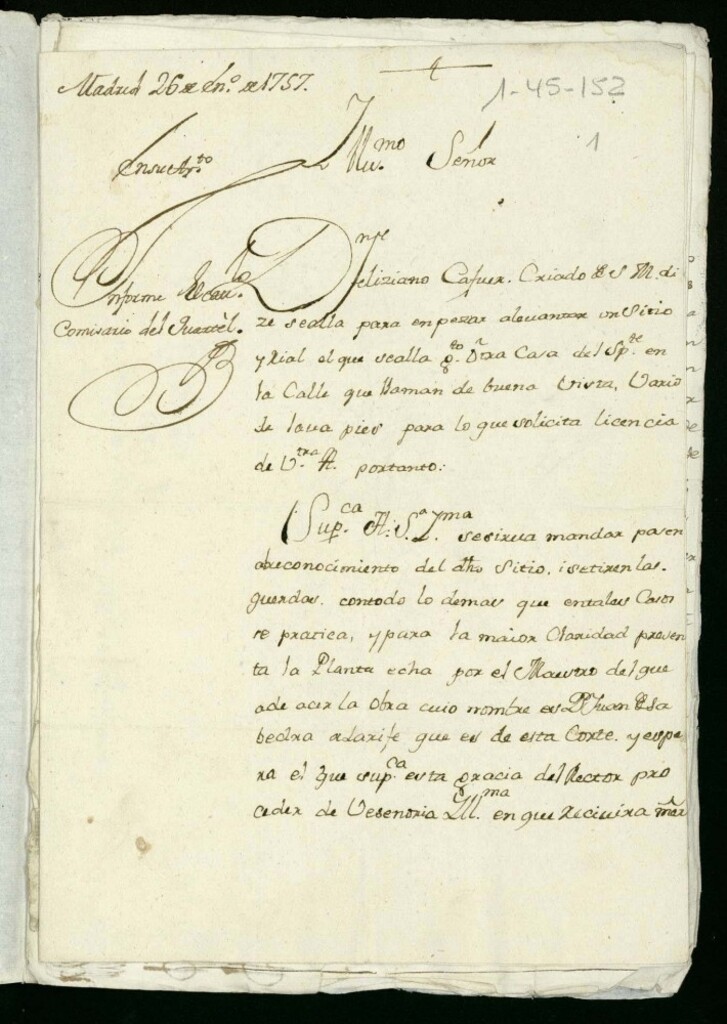 Madrid 26 de En.º de 1757.
1-45-152
1
En su Ay.to
Yllu.mo Señor
Informe el cau.º
Comisario del Quartel.
Dn Feliziano Cafuer. Criado de S. M. di
ze se alla para enpezar alevantar un Sitio
y Rial el que se alla q.to otra Casa del Sp.te en
la Calle que llaman de buena vista, Vario
de lava pies para lo que solicita licencia
de V.tra A. portanto:
Sup.ca A. S.a Y.ma se sirua mandar pasen
a reconocimiento del dho Sitio. i se tiren las.
querdas. contodo lo demas que entales Casos
se pratica, y para la maior Claridad presen
ta la Planta echa por el Maestro del que
a de acer la Obra cuio nombre es Dn Juan de Sa
bedra alarife que es de esta Corte. y espe
ra el que sup.ca esta gracia del Rector pro
ceder de Vesenoria Yll.ma en que recivira mrd